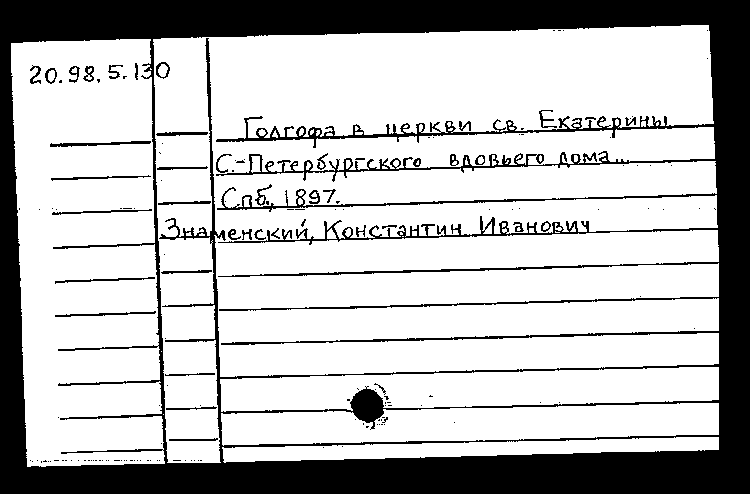 20.98.5.130
Голгофа в церкви св. Екатерины
С.-Петербургского вдовьего дома...
Спб., 1897.
Знаменский, Константин Иванович